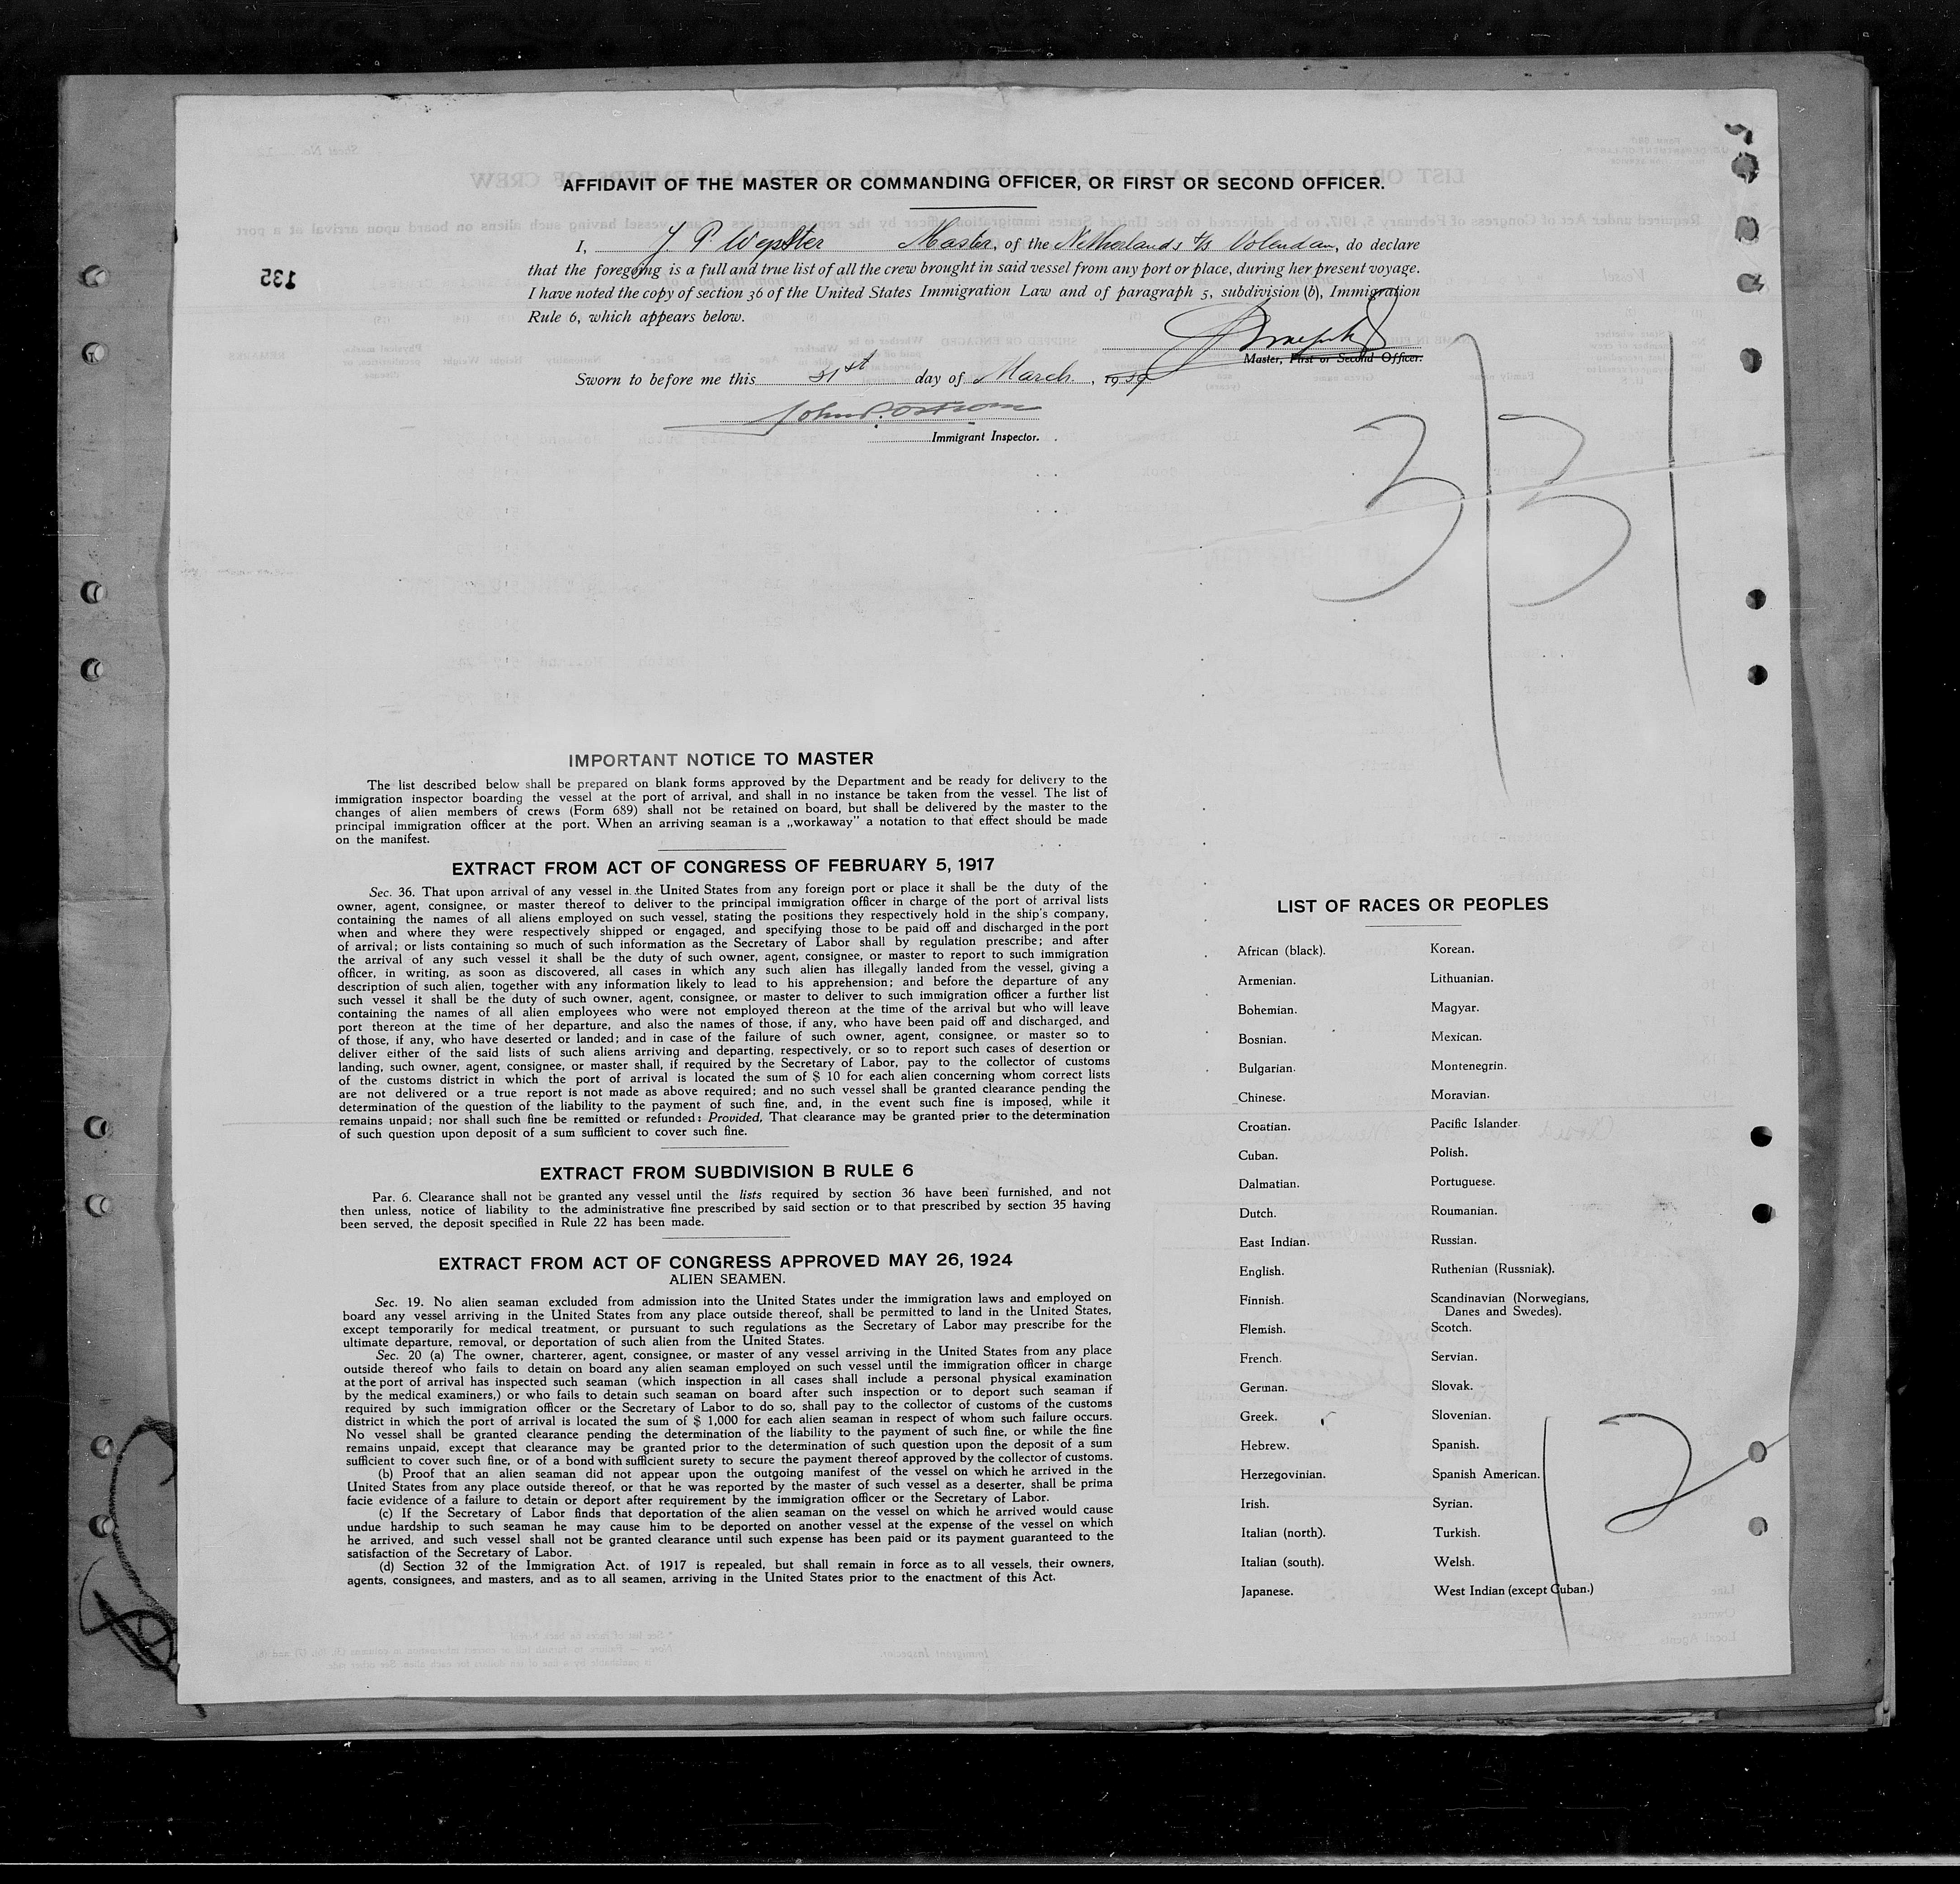 AFFIDAVIT OF THE MASTER OR COMMANDING OFFICER, OR FIRST OR SECOND OFFICER.
I, J P. Wepster Master, of the Netherlands s/s Volendam, do declare
that the foregoing is a full and true list of all the crew brought in said vessel from any port or place, during her present voyage.
I have noted the copy of section 36 of the United States Immigration Law and of paragraph 5, subdivision (b), Immigration
Rule 6, which appears below.
135
Master, First or Second Officer.
Sworn to before me this 31st day of March, 1939
Immigrant Inspector.
3/31
IMPORTANT NOTICE TO MASTER
The list described below shall be prepared on blank forms approved by the Department and be ready for delivery to the
immigration inspector boarding the vessel at the port of arrival, and shall in no instance be taken from the vessel. The list of
changes of alien members of crews (Form 689) shall not be retained on board, but shall be delivered by the master to the
principal immigration officer at the port. When an arriving seaman is a „workaway” a notation to that effect should be made
on the manifest.
EXTRACT FROM ACT OF CONGRESS OF FEBRUARY 5, 1917
Sec. 36. That upon arrival of any vessel in the United States from any foreign port or place it shall be the duty of the
owner, agent, consignee, or master thereof to deliver to the principal immigration officer in charge of the port of arrival lists
containing the names of all aliens employed on such vessel, stating the positions they respectively hold in the ship's company,
when and where they were respectively shipped or engaged, and specifying those to be paid off and discharged in the port
of arrival; or lists containing so much of such information as the Secretary of Labor shall by regulation prescribe; and after
the arrival of any such vessel it shall be the duty of such owner, agent, consignee, or master to report to such immigration
officer, in writing, as soon as discovered, all cases in which any such alien has illegally landed from the vessel, giving a
description of such alien, together with any information likely to lead to his apprehension; and before the departure of any
such vessel it shall be the duty of such owner, agent, consignee, or master to deliver to such immigration officer a further list
containing the names of all alien employees who were not employed thereon at the time of the arrival but who will leave
port thereon at the time of her departure, and also the names of those, if any, who have been paid off and discharged, and
of those, if any, who have deserted or landed; and in case of the failure of such owner, agent, consignee, or master so to
deliver either of the said lists of such aliens arriving and departing, respectively, or so to report such cases of desertion or
landing, such owner, agent, consignee, or master shall, if required by the Secretary of Labor, pay to the collector of customs
of the customs district in which the port of arrival is located the sum of $ 10 for each alien concerning whom correct lists
are not delivered or a true report is not made as above required; and no such vessel shall be granted clearance pending the
determination of the question of the liability to the payment of such fine, and, in the event such fine is imposed, while it
remains unpaid; nor shall such fine be remitted or refunded: Provided, That clearance may be granted prior to the determination
of such question upon deposit of a sum sufficient to cover such fine.
EXTRACT FROM SUBDIVISION B RULE 6
Par. 6. Clearance shall not be granted any vessel until the lists required by section 36 have been furnished, and not
then unless, notice of liability to the administrative fine prescribed by said section or to that prescribed by section 35 having
been served, the deposit specified in Rule 22 has been made.
EXTRACT FROM ACT OF CONGRESS APPROVED MAY 26, 1924
ALIEN SEAMEN.
Sec. 19. No alien seaman excluded from admission into the United States under the immigration laws and employed on
board any vessel arriving in the United States from any place outside thereof, shall be permitted to land in the United States,
except temporarily for medical treatment, or pursuant to such regulations as the Secretary of Labor may prescribe for the
ultimate departure, removal, or deportation of such alien from the United States.
Sec. 20 (a) The owner, charterer, agent, consignee, or master of any vessel arriving in the United States from any place
outside thereof who fails to detain on board any alien seaman employed on such vessel until the immigration officer in charge
at the port of arrival has inspected such seaman (which inspection in all cases shall include a personal physical examination
by the medical examiners,) or who fails to detain such seaman on board after such inspection or to deport such seaman if
required by such immigration officer or the Secretary of Labor to do so, shall pay to the collector of customs of the customs
district in which the port of arrival is located the sum of $ 1,000 for each alien seaman in respect of whom such failure occurs.
No vessel shall be granted clearance pending the determination of the liability to the payment of such fine, or while the fine
remains unpaid, except that clearance may be granted prior to the determination of such question upon the deposit of a sum
sufficient to cover such fine, or of a bond with sufficient surety to secure the payment thereof approved by the collector of customs.
(b) Proof that an alien seaman did not appear upon the outgoing manifest of the vessel on which he arrived in the
United States from any place outside thereof, or that he was reported by the master of such vessel as a deserter, shall be prima
facie evidence of a failure to detain or deport after requirement by the immigration officer or the Secretary of Labor.
(c) If the Secretary of Labor finds that deportation of the alien seaman on the vessel on which he arrived would cause
undue hardship to such seaman he may cause him to be deported on another vessel at the expense of the vessel on which
he arrived, and such vessel shall not be granted clearance until such expense has been paid or its payment guaranteed to the
satisfaction of the Secretary of Labor.
(d) Section 32 of the Immigration Act. of 1917 is repealed, but shall remain in force as to all vessels, their owners,
agents, consignees, and masters, and as to all seamen, arriving in the United States prior to the enactment of this Act.
LIST OF RACES OR PEOPLES
African (black).
Armenian.
Bohemian.
Bosnian.
Bulgarian.
Chinese.
Croatian.
Cuban.
Dalmatian.
Dutch.
East Indian.
English.
Finnish.
Flemish.
French.
German.
Greek.
Hebrew.
Herzegovinian.
Irish.
Italian (north).
Italian (south).
Japanese.
Korean.
Lithuanian.
Magyar.
Mexican.
Montenegrin.
Moravian.
Pacific Islander.
Polish.
Portuguese.
Roumanian.
Russian.
Ruthenian (Russniak).
Scandinavian (Norwegians,
Danes and Swedes).
Scotch.
Servian.
Slovak.
Slovenian.
Spanish.
Spanish American.
Syrian.
Turkish.
Welsh.
West Indian (except Cuban.)
12